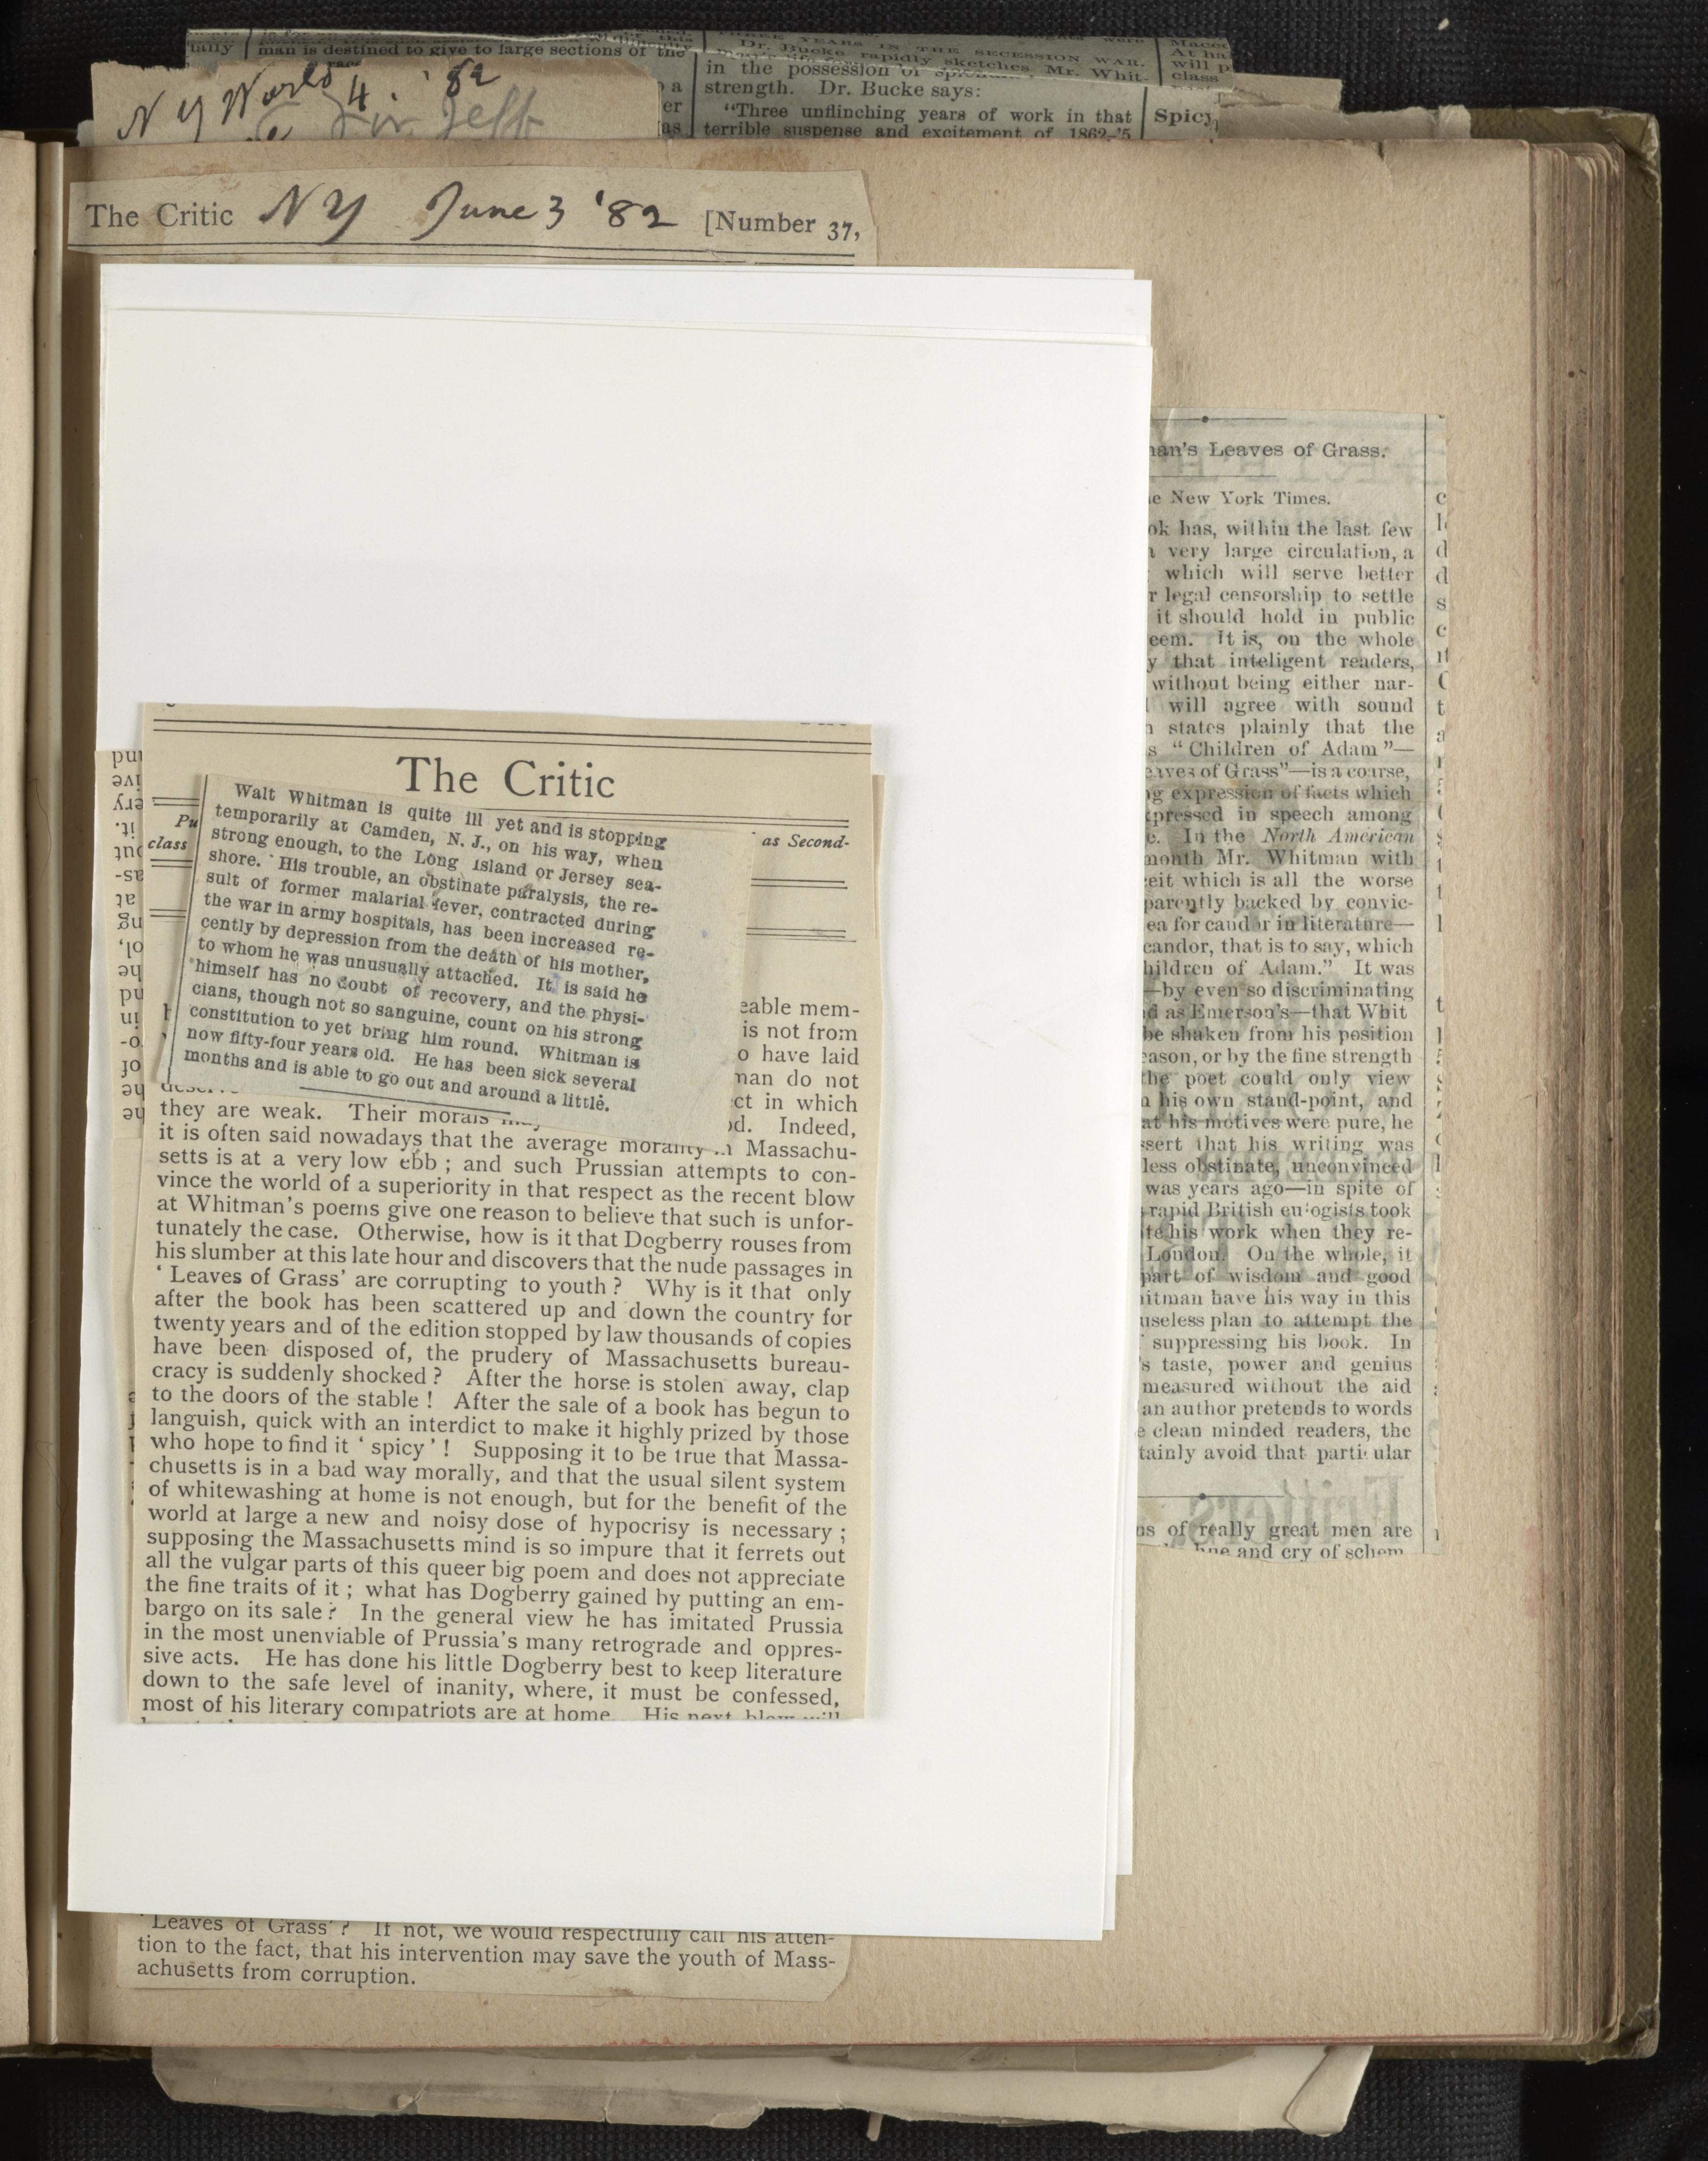 man is destined to give to large sections of the
THREE YEARS IN THE SECESSION WAR.
Dr. Bucke rapidly sketches Mr. Whit-
in the possession of
strength. Dr. Bucke says:
"Three unflinching years of work in that
terrible suspense and excitement of 1862-'5
At
will
class
Spicy,
N Y World
4. '82
Jeff
The Critic NY June 3 '82 [Number 37,
The Critic
as Second-
class
Walt Whitman is quite ill yet and is stopping
temporarily at Camden, N. J., on his way, when
strong enough, to the Long Island or Jersey sea-
shore. His trouble, an obstinate paralysis, the re-
sult of former malarial fever, contracted during
the war in army hospitals, has been increased re-
cently by depression from the death of his mother,
to whom he was unusually attached. It is said he
himself has no doubt of recovery, and the physi-
cians, though not so sanguine, count on his strong
constitution to yet bring him round. Whitman is
now fifty-four years old. He has been sick several
months and is able to go out and around a little.
eable mem-
is not from
o have laid
man do not
ct in which
od. Indeed,
they are weak. Their morals
it is often said nowadays that the average morality in Massachu-
setts is at a very low ebb ; and such Prussian attempts to con-
vince the world of a superiority in that respect as the recent blow
at Whitman's poems give one reason to believe that such is unfor-
tunately the case. Otherwise, how is it that Dogberry rouses from
his slumber at this late hour and discovers that the nude passages in
' Leaves of Grass' are corrupting to youth ? Why is it that only
after the book has been scattered up and down the country for
twenty years and of the edition stopped by law thousands of copies
have been disposed of, the prudery of Massachusetts bureau-
cracy is suddenly shocked ? After the horse is stolen away, clap
to the doors of the stable ! After the sale of a book has begun to
languish, quick with an interdict to make it highly prized by those
who hope to find it ' spicy ' ! Supposing it to be true that Massa-
chusetts is in a bad way morally, and that the usual silent system
of whitewashing at home is not enough, but for the benefit of the
world at large a new and noisy dose of hypocrisy is necessary ;
supposing the Massachusetts mind is so impure that it ferrets out
all the vulgar parts of this queer big poem and does not appreciate
the fine traits of it ; what has Dogberry gained by putting an em-
bargo on its sale ? In the general view he has imitated Prussia
in the most unenviable of Prussia's many retrograde and oppres-
sive acts. He has done his little Dogberry best to keep literature
down to the safe level of inanity, where, it must be confessed,
most of his literary compatriots are at home. His next blow will
' Leaves of Grass' ? If not, we would respectfully call his atten-
tion to the fact, that his intervention may save the youth of Mass-
achusetts from corruption.
man's Leaves of Grass.
e New York Times.
ok has, within the last few
a very large circulation, a
which will serve better
r legal censorship to settle
it should hold in public
eem. It is, on the whole
y that inteligent readers,
without being either nar-
will agree with sound
n states plainly that the
s "Children of Adam"—
eaves of Grass"—is a coarse,
ng expression of facts which
xpressed in speech among
e. In the North American
month Mr. Whitman with
eit which is all the worse
parently backed by convic-
ea for candor in literature—
candor, that is to say, which
hildren of Adam." It was
—by even so discriminating
d as Emerson's—that Whit
be shaken from his position
eason, or by the fine strength
the poet could only view
n his own stand-point, and
at his motives were pure, he
ssert that his writing was
less obstinate, unconvinced
was years ago—in spite of
rapid British eulogists took
te his work when they re-
London. On the whole, it
part of wisdom and good
hitman have his way in this
useless plan to attempt the
f suppressing his book. In
's taste, power and genius
measured without the aid
an author pretends to words
e clean minded readers, the
tainly avoid that particular
ns of really great men are
hue and cry of schem